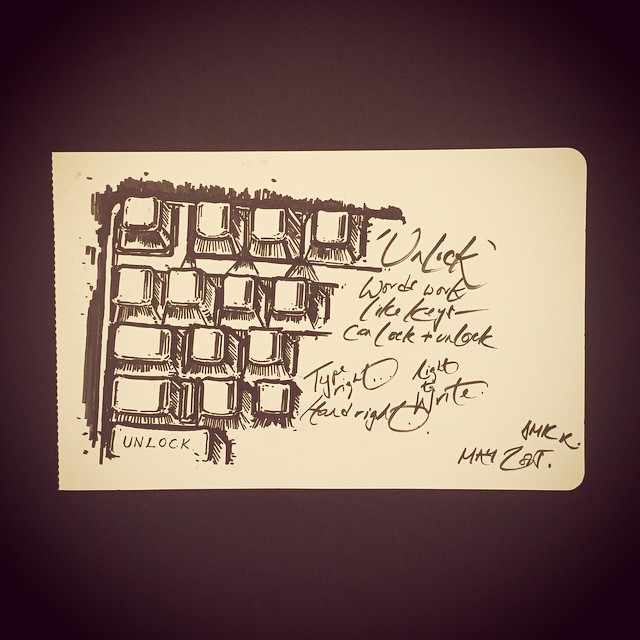 'Unlock'
Words work
like keys—
Can lock + unlock
Type right.. right to write.
Hand right..
UNLOCK
MAY